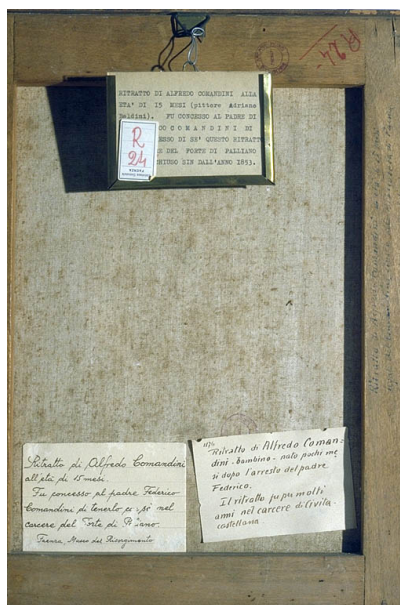 RITRATTO DI ALFREDO COMANDINI ALLA
ETA' DI 15 MESI (pittore Adriano
Baldini). FU CONCESSO AL PADRE DI
COMANDINI DI
SESSO DI SE' QUESTO RITRATTO
DEL FORTE DI PALLIANO
CHIUSO SIN DALL'ANNO 1853.
R
24
R 24
Ritratto di Alfredo Comandini
all'età di 15 mesi.
Fu concesso al padre Federico
Comandini di tenerlo nel
carcere del Forte di
Faenza, Museo del Risorgimento
1174
Ritratto di Alfredo Coman-
dini - bambino - nato pochi me
si dopo l'arresto del padre
Federico.
Il ritratto fu per molti
anni nel carcere di Civita-
castellana.